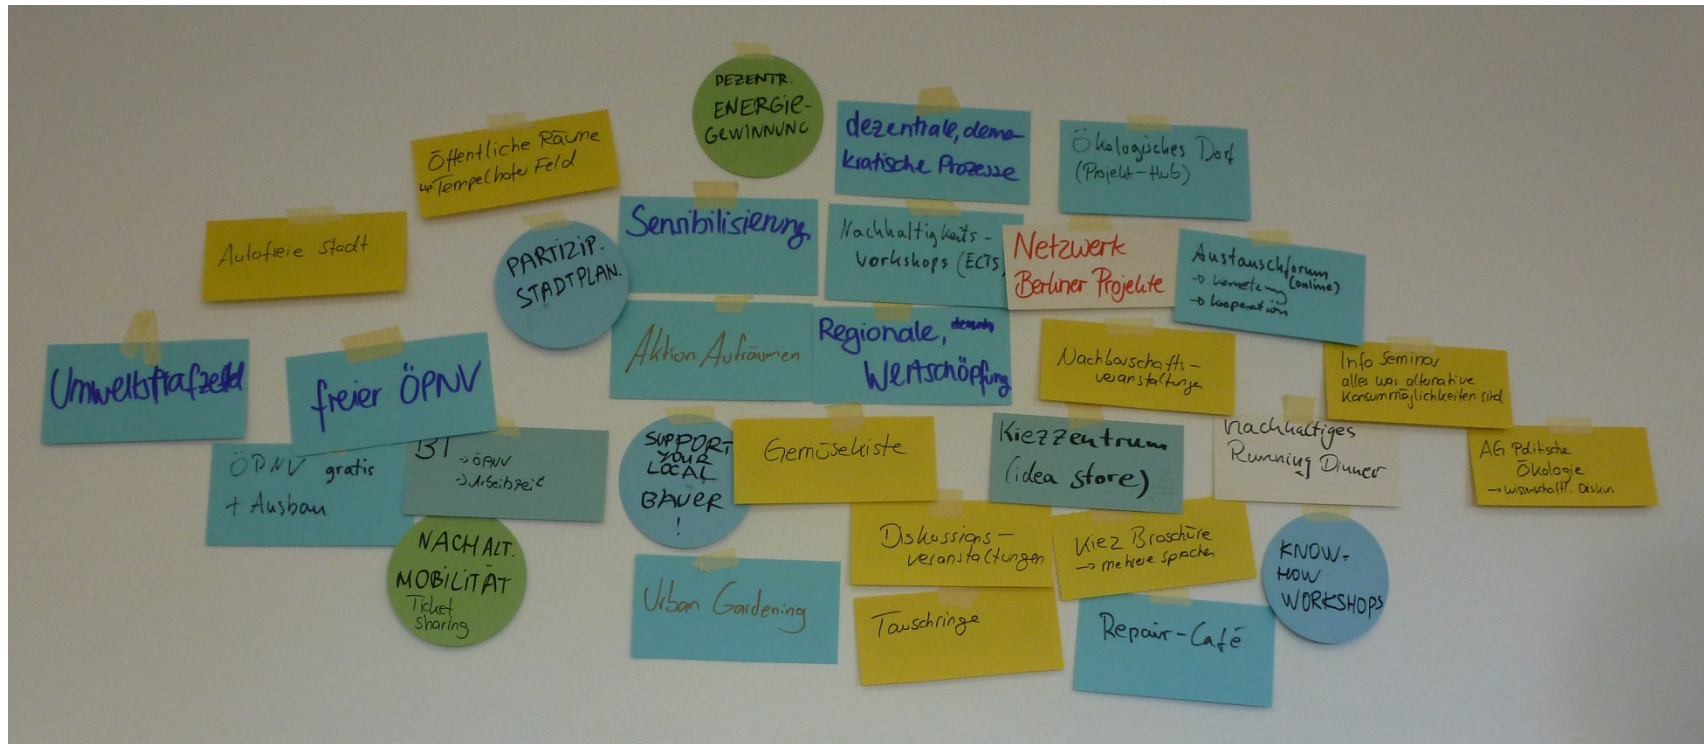 DEZENTR.
ENERGIE-
GEWINNUNG
Öffentliche Räume
↳ Tempelhofer Feld
dezentrale, demo-
kratische Prozesse
Ökologisches Dorf
(Projekt-HuB)
Autofreie Stadt
PARTIZIP.
STADTPLAN.
Sensibilisierung
Nachhaltigkeits-
workshops (ECTS
Netzwerk
Berliner Projekte
Austauschforum
(online)
→ Vernetzung
→ Kooperation
Umweltstrafzettel
freier ÖPNV
Aktion Aufräumen
Regionale,
Wertschöpfung
Nachbarschafts-
veranstaltungen
Info Seminar
alles was alternative
Konsummöglichkeiten sind
ÖPNV gratis
+ Ausbau
→ ÖPNV
→ Arbeitszeit
SUPPORT
YOUR
LOCAL
BAUER
!
Gemüsekiste
Kiezzentrum
(idea store)
nachhaltiges
Running Dinner
AG Politische
Ökologie
→ wissenschaftl. Diskurs
NACHALT.
MOBILITÄT
Ticket
sharing
Urban Gardening
Diskussions-
veranstaltungen
Kiez Broschüre
→ mehrere sprachen
KNOW-
HOW
WORKSHOPS
Tauschringe
Repair-Café